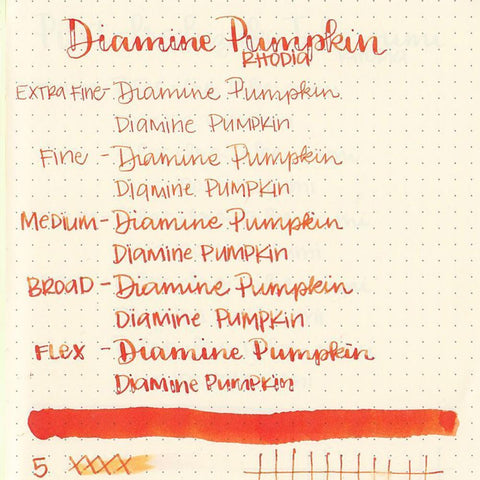 Diamine Pumpkin
RHODIA
EXTRA FINE - Diamine Pumpkin
DIAMINE PUMPKIN
FINE - Diamine Pumpkin
DIAMINE PUMPKIN
MEDIUM - Diamine Pumpkin
DIAMINE PUMPKIN
BROAD - Diamine Pumpkin
DIAMINE PUMPKIN
FLEX - Diamine Pumpkin
DIAMINE PUMPKIN
5 XXXX